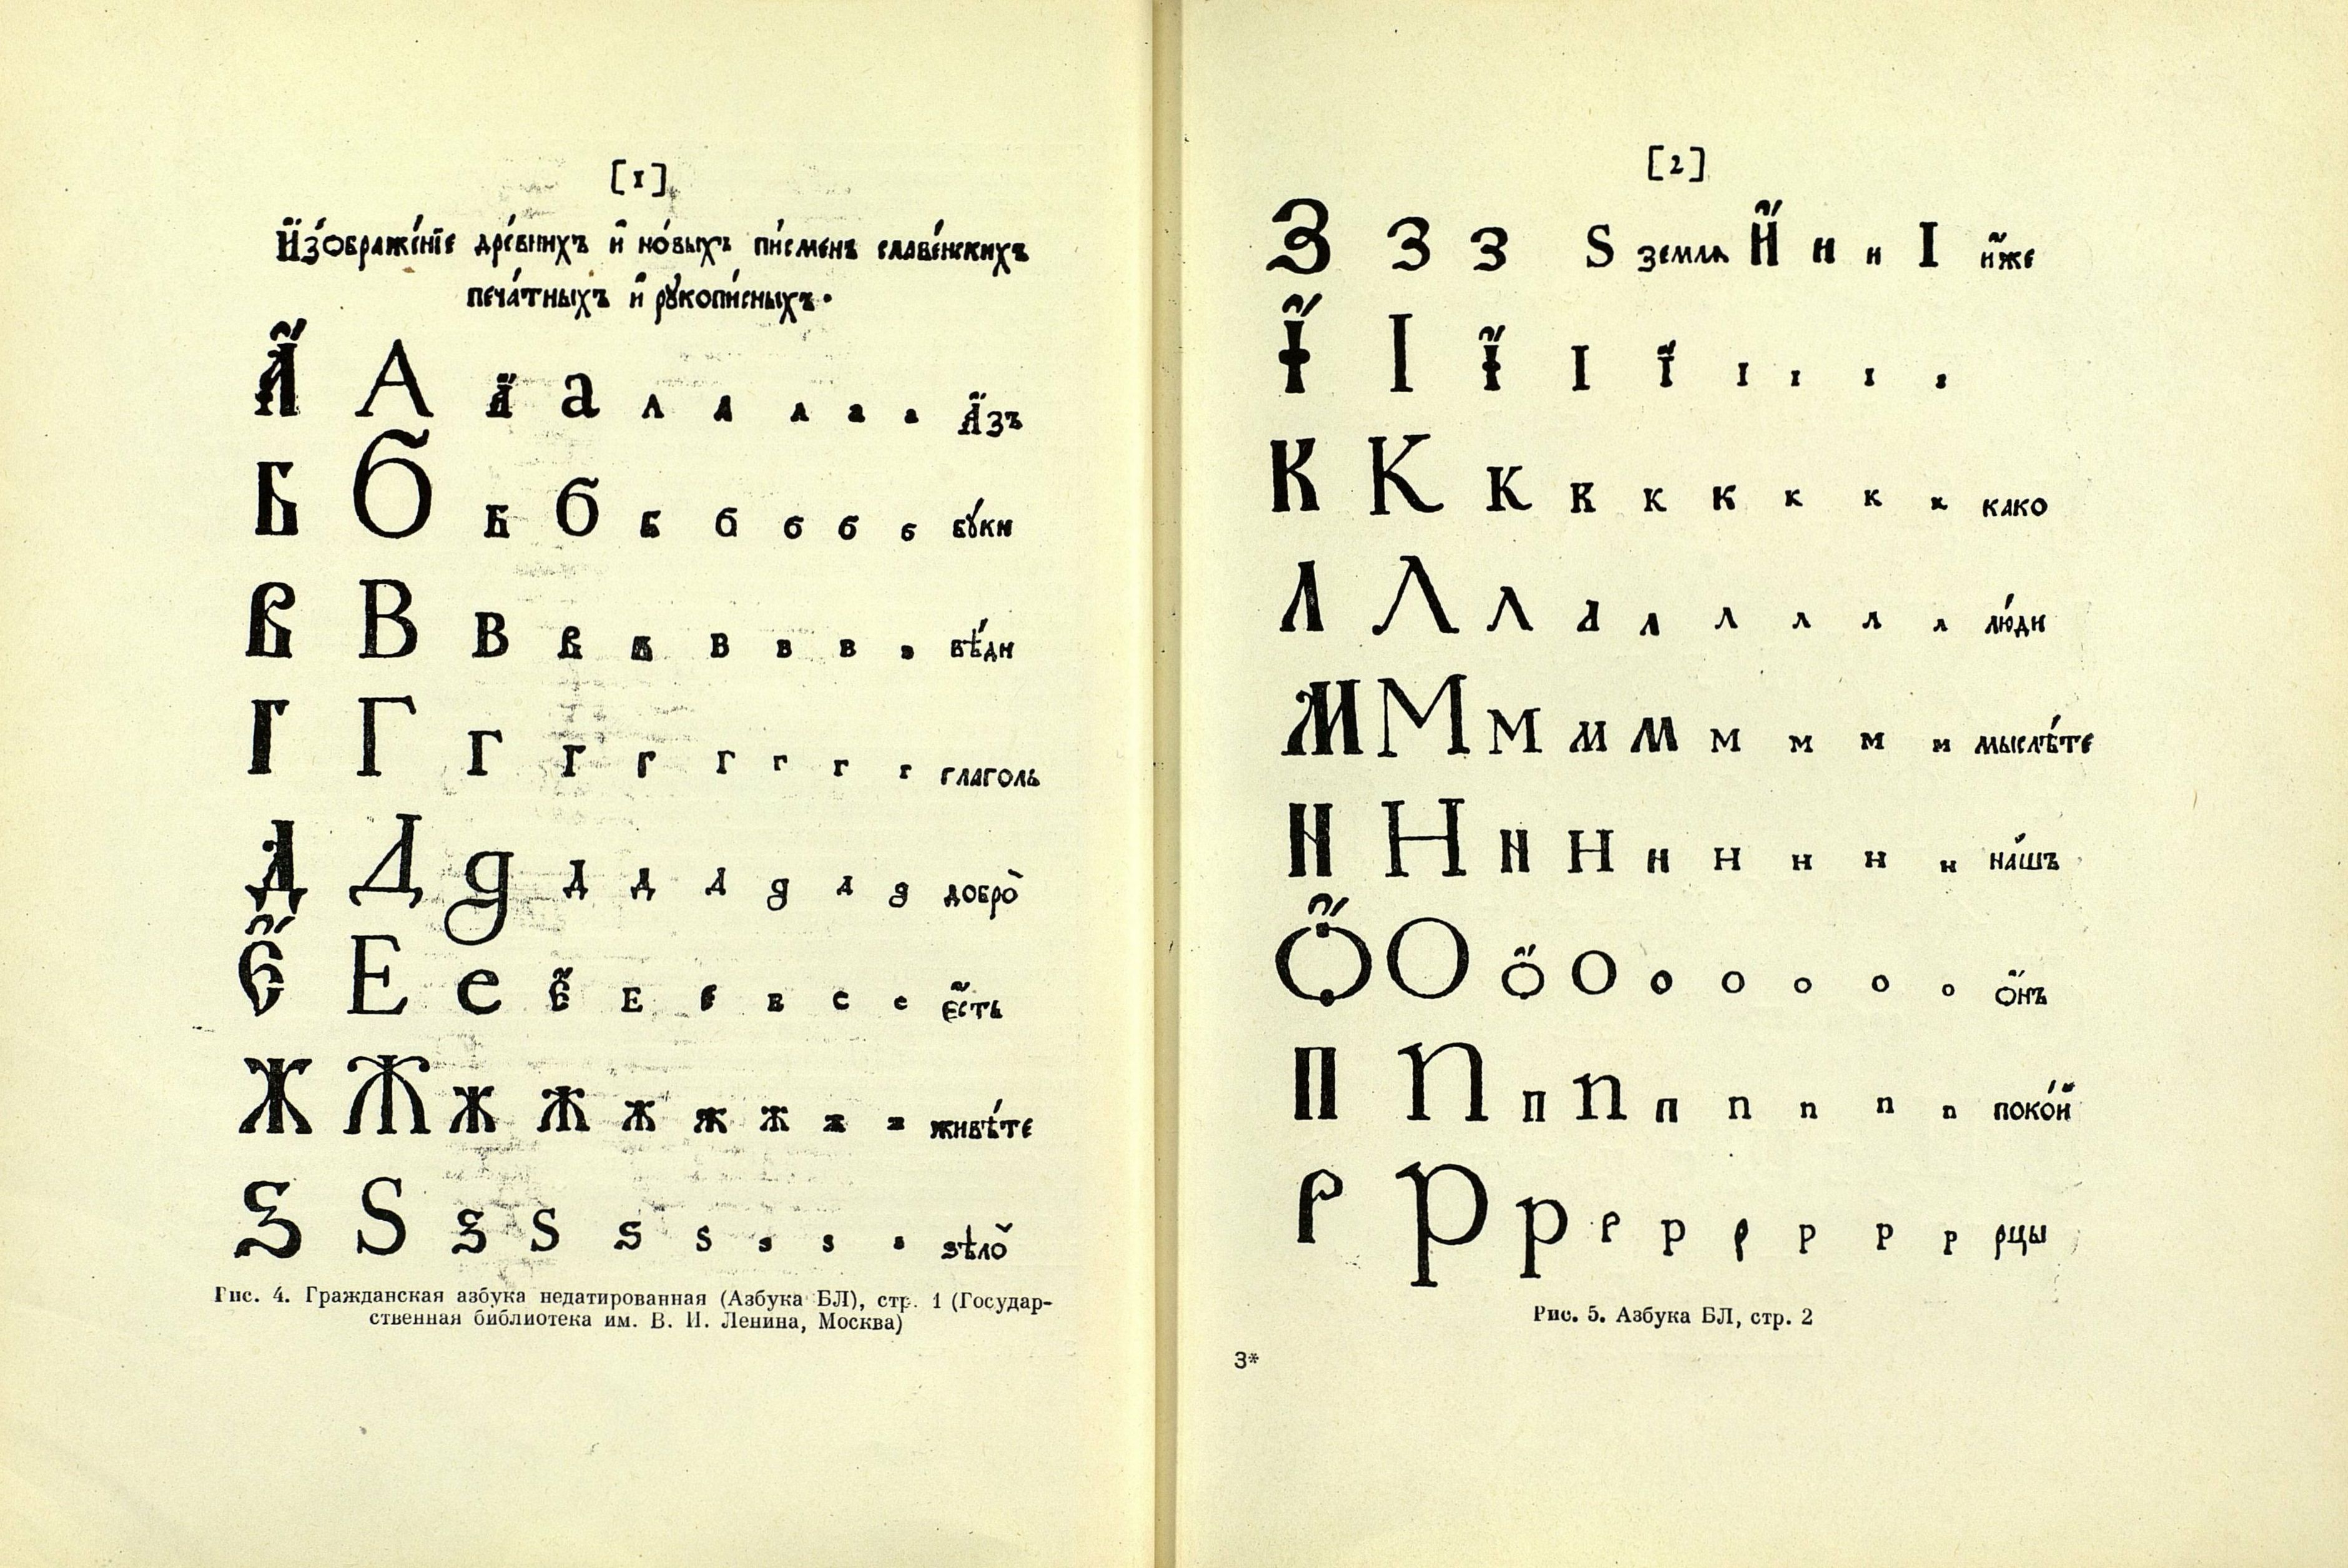 [1]
И҆зѡбраже́нїе дре́внихъ и҆ но́выхъ пи́сменъ славе́нскихъ
печа́тныхъ и҆ рꙋкопи́сныхъ.
А҆́ А а҆́ а а а а а а а҆́зъ
Б Б б б б б б б б бꙋ́ки
В В В в в в в в в вѣ́ди
Г Г г г г г г г г глаголь
Д Д д д д д д д д добро̀
Є҆́ Е е є҆́ Е е е е е е҆́сть
Ж Ж ж ж ж ж ж ж ж живѣ́те
Ѕ Ѕ ѕ ѕ ѕ ѕ ѕ ѕ ѕ ѕѣло̀
Рис. 4. Гражданская азбука недатированная (Азбука БЛ), стр. 1 (Государ-
ственная библиотека им. В. И. Ленина, Москва)
[2]
З З з Ѕ земля И҆́ и и І и҆́же
І҆́ І і҆́ І і҆́ і і і і
К К к к к к к к к како
Л Л л л л л л л л лю́ди
М М м м м м м м м мыслѣ́те
Н Н н н н н н н н на́шъ
Ѻ҆́ О о҆́ о о о о о о о҆́нъ
П П п п п п п п п поко́й
Р Р р р р р р р р рцы
Рис. 5. Азбука БЛ, стр. 2
3*